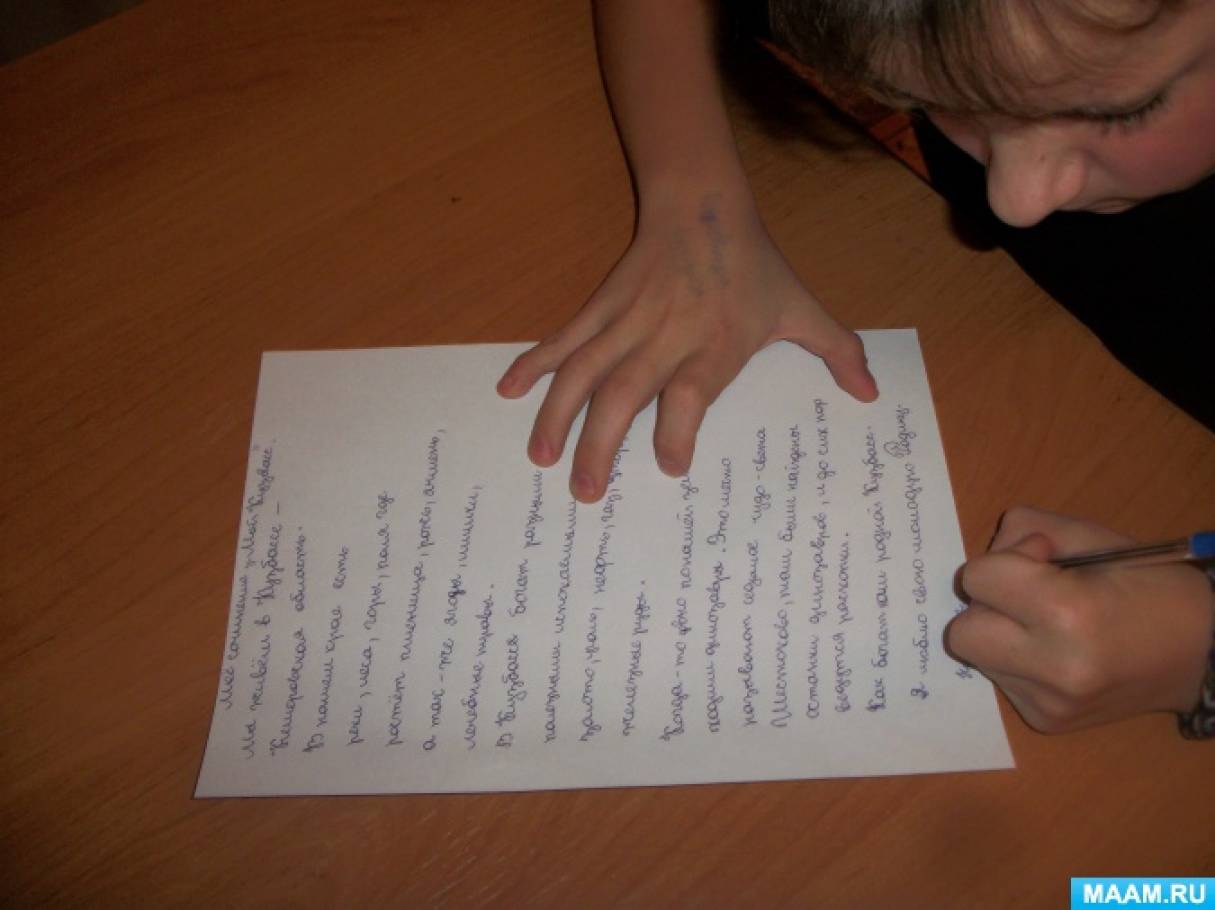 Моё сочинение "Мой Кузбасс".
Мы живём в "Кузбассе –
"Кемеровская область.
В нашем крае есть
реки, леса, горы, поля где
растёт пшеница, рожь, ячмень,
а так-же ягоды, шишки,
лечебные травы.
В Кузбассе богат разными
полезными ископаемыми
золото, уголь, нефть, газ,
железные руды.
Когда-то давно по нашей
ходили динозавры. Это место
называют седьмое чудо-света
Шестаково, там были найдены
останки динозавров, и до сих пор
ведутся раскопки.
Как богат наш родной Кузбасс.
Я люблю свою молодую Родину.
MAAM.RU